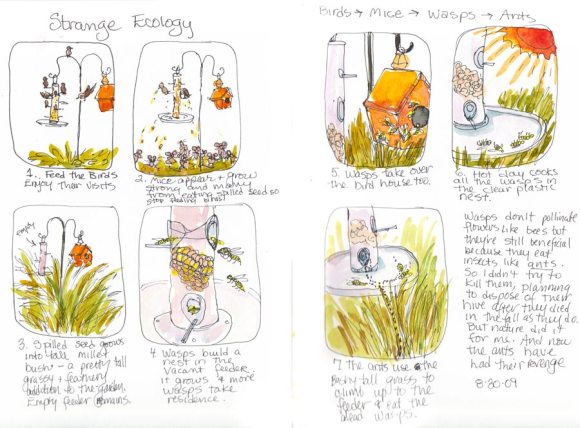 Strange Ecology
Birds → Mice → Wasps → Ants
1. Feed the Birds
Enjoy their visits
2. Mice appear + grow
strong and many
from eating spilled seed so
stop feeding birds!
empty
3. Spilled seed grows
into tall millet
bush – a pretty tall
grassy + feathery
addition to the garden.
Empty feeder remains.
4. Wasps build a
nest in the
vacant feeder.
it grows & more
wasps take
residence.
5. Wasps take over
the bird house too.
6. Hot day cooks
all the wasps in
the clear plastic
nest.
7. The ants use the
bushy tall grass to
climb up to the
feeder & eat the
dead wasps.
Wasps don't pollinate
flowers like bees but
they're still beneficial
because they eat
insects like ants.
So I didn't try to
kill them, planning
to dispose of their
hive after they died
in the fall as they do.
But nature did it
for me. And now
the ants have
had their revenge.
8·30·09